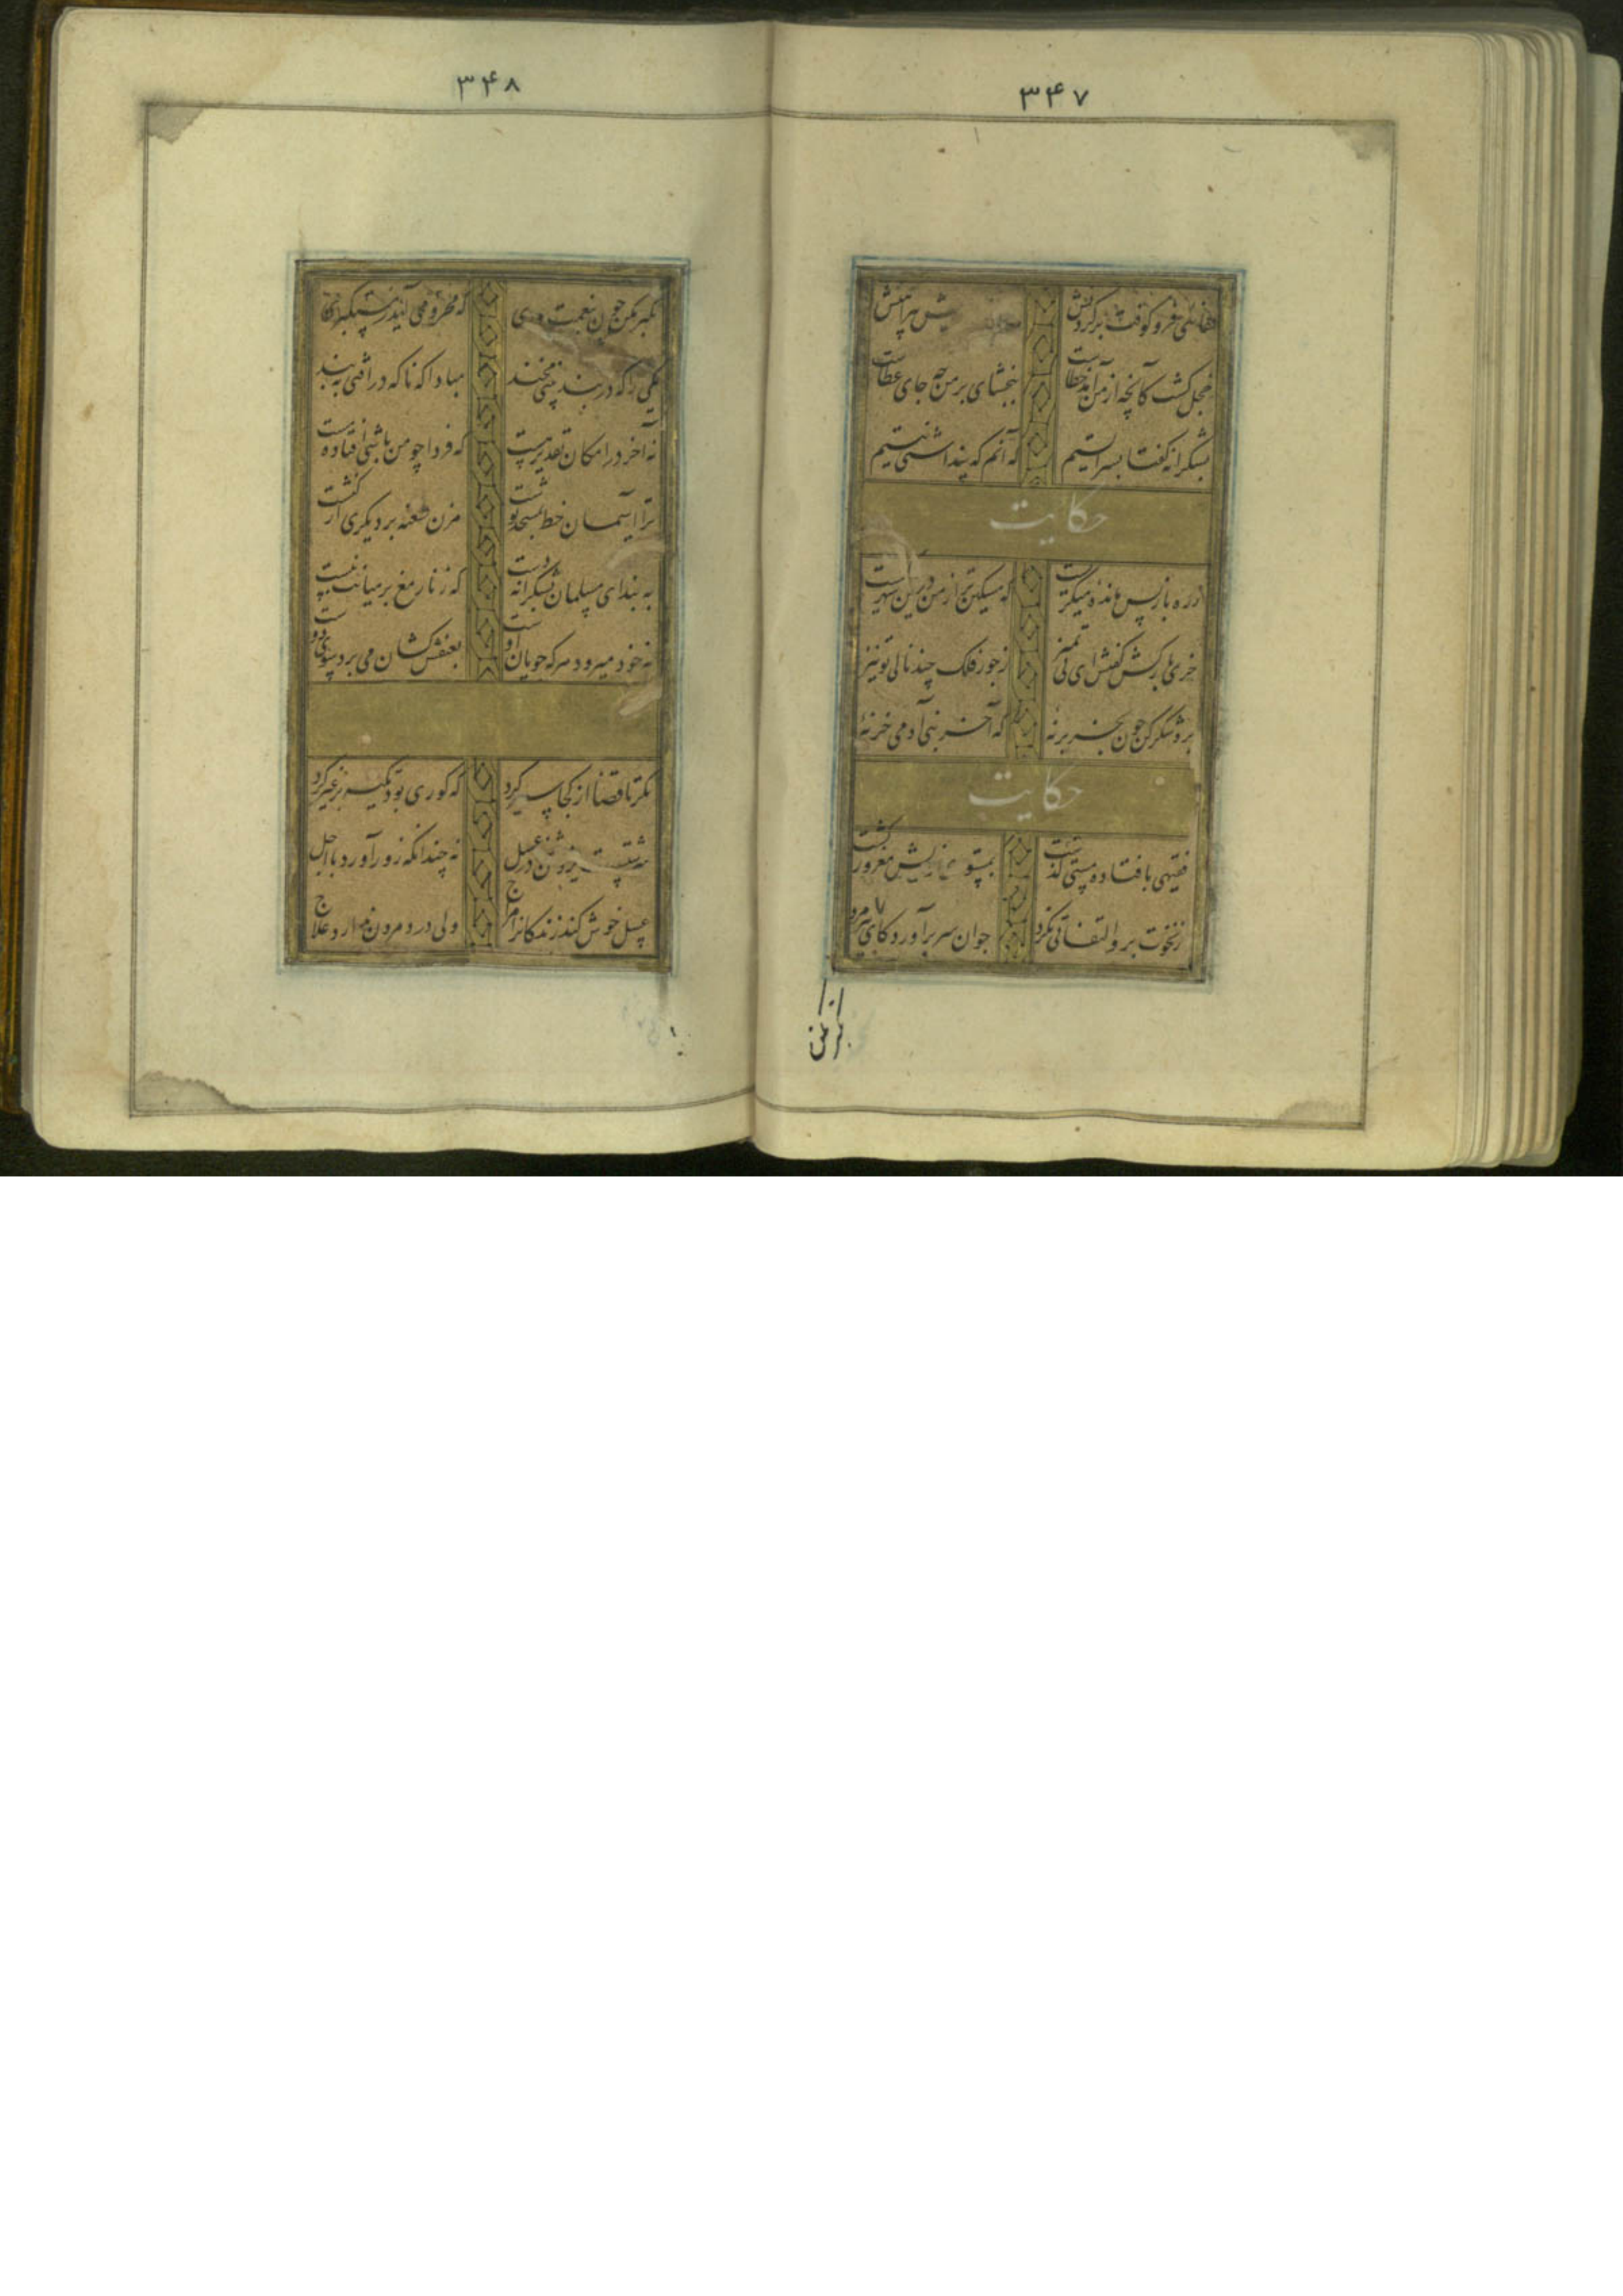 ۳۴۷
قفائی فرو کوفت بر گردنش پیراهنش
خجل گشت کانچه از من آمد خطاست ببخشای بر من چه جای عطاست
بشکرانه گفتا بسر ایستم که آنم که پنداشتی نیستم
حکایت
ز ره باز پس مانده میگریست که مسکین تر از من درین شهر
خری بارکش گفتش ای بی تمیز ز جور فلک چند نالی تو نیز
برو شکر کن چون بخر بر نه که آخر بنی آدمی خر نه
حکایت
فقیهی بافتاده مستی گذشت بمستو خویش مغرور گشت
ز نخوت برو التفاتی نکرد جوان سر برآورد کای پیرمرد
۳۴۸
تکبر مکن چون بنعمت دری که محرومی آید ز مستکبری
یکی را که در بند بینی مخند مبادا که ناگه در افتی به بند
نه آخر در امکان تقدیر هست که فردا چو من باشی افتاده مست
ترا آسمان خط بمسجد نوشت مزن طعنه بر دیگری در کنشت
به بند ای مسلمان بشکرانه دست که زنار مغ بر میانت نبست
نه خود میرود هر که جویان اوست بعنفش کشان می برد سوی دوست
نگر تا قضا از کجا سیر کرد که کوری بود تکیه بر غیر کرد
در عسل نه چندانکه زور آورد با اجل
عسل خوش کند زندگانرا مزاج ولی درد مردن ندارد علاج